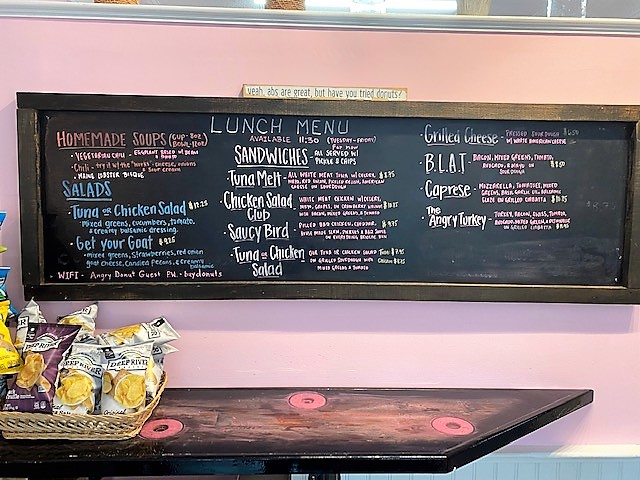 yeah, abs are great, but have you tried donuts?
LUNCH MENU
AVAILABLE 11:30 (TUESDAY-FRIDAY)
HOMEMADE SOUPS (CUP-8oz
BOWL-12oz)
• VEGETARIAN CHILI -
• Chili - try it w/ the "works"- cheese, onions
& sour cream
• MAINE LOBSTER BISQUE
SALADS
• Tuna or Chicken Salad $17.25
•mixed greens, cucumbers, tomato,
& creamy balsamic dressing.
• Get your Goat $9.25
•mixed greens, strawberries, red onion
goat cheese, candied pecans, & creamy
balsamic
• WIFI - Angry Donut Guest PW- buydonuts
SANDWICHES- ALL SERVED W/
PICKLE & CHIPS
• Tuna Melt - ALL WHITE MEAT TUNA W/CELERY, $8.75
MAYO, RED ONION, PICKLED RELISH, AMERICAN
CHEESE ON SOURDOUGH
• Chicken Salad
Club
WHITE MEAT CHICKEN W/CELERY,
MAYO, GRAPES, ON CRANBERRY
WITH BACON, MIXED GREENS, & TOMATO
• Saucy Bird -
PULLED BBQ CHICKEN, CHEDDAR,
HOUSE MADE SLAW, PICKLES & BBQ SAUCE
• Tuna or Chicken
Salad
OUR TUNA OR CHICKEN SALAD
ON GRILLED SOURDOUGH WITH
MIXED GREENS & TOMATO
• Grilled Cheese - PRESSED SOURDOUGH
W/ WHITE AMERICAN CHEESE
• B.L.A.T BACON, MIXED GREENS, TOMATO,
AVOCADO, & MAYO ON
SOURDOUGH
• Caprese - MOZZARELLA, TOMATOES, MIXED
GREENS, BALSAMIC
GLAZE ON GRILLED CIABATTA
• The
Angry Turkey
TURKEY, BACON, SWISS, TOMATO,
AVOCADO, MIXED GREENS
ON GRILLED CIABATTA
DEEP RIVER
DEEP RIVER
DEEP RIVER